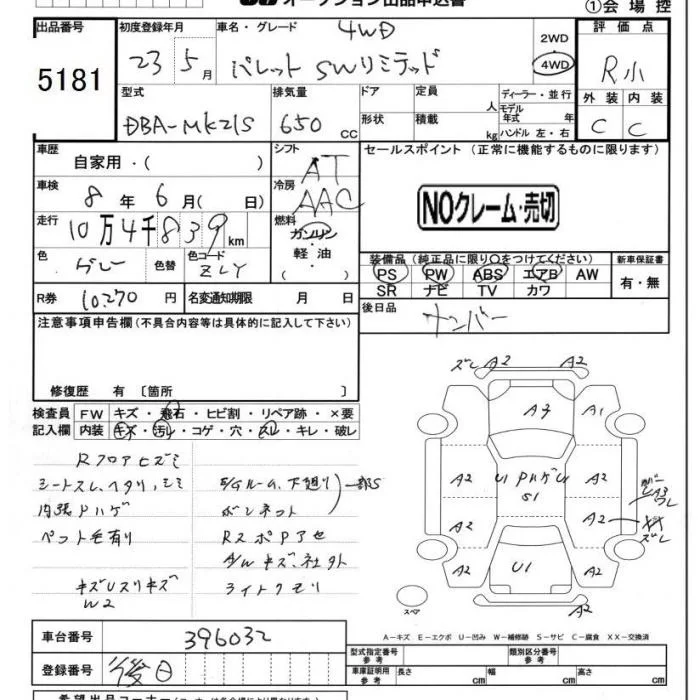 オークション出品申込書
①会場控
出品番号
5181
初度登録年月
23 5月
車名・グレード
4WD
パレット SWリミテッド
2WD
・
4WD
評価点
R小
外装 内装
C C
型式
DBA-MK21S
排気量
650 cc
ドア
形状
定員 人
積載 kg
ディーラー・並行
モデル
年式 年
ハンドル 左・右
車歴
自家用・( )
シフト
AT
セールスポイント(正常に機能するものに限ります)
NOクレーム・売切
車検
8年 6月( 日)
冷房
AAC
走行
10万4千839km
燃料
ガソリン
・
軽油
( )
色
グレー
色替
色コード
ZLY
装備品(純正品に限り○をつけてください)
PS PW ABS エアB AW
SR ナビ TV カワ
新車保証書
有・無
R券 10270 円
名変通知期限 月 日
後日品
ナンバー
注意事項申告欄(不具合内容等は具体的に記入して下さい)
修復歴 有〔箇所 〕
検査員記入欄
FW キズ・飛石・ヒビ割・リペア跡・×要
内装 キズ・汚レ・コゲ・穴・スレ・キレ・破レ
Rフロアヒズミ
シートスレ、ヘタリ、シミ
内張Pハゲ
ペット毛有り
キズUスリキズ
W2
E/Gルーム、下廻り 一部S
ボンネット
RスポPアセ
A/Wキズ、社外
ライトクモリ
ズレ A2 A2
A7 A1
A2 U1 PハゲU A2
S1
A2 A2
ズレ
A2 U1 A2
A2
スペア
A-キズ E-エクボ U-凹み W-補修跡 S-サビ C-腐食 XX-交換済
車台番号
396032
登録番号
後日
型式指定番号
参考
類別区分番号
参考
車庫証明用
参考
長さ cm 幅 cm 高さ cm